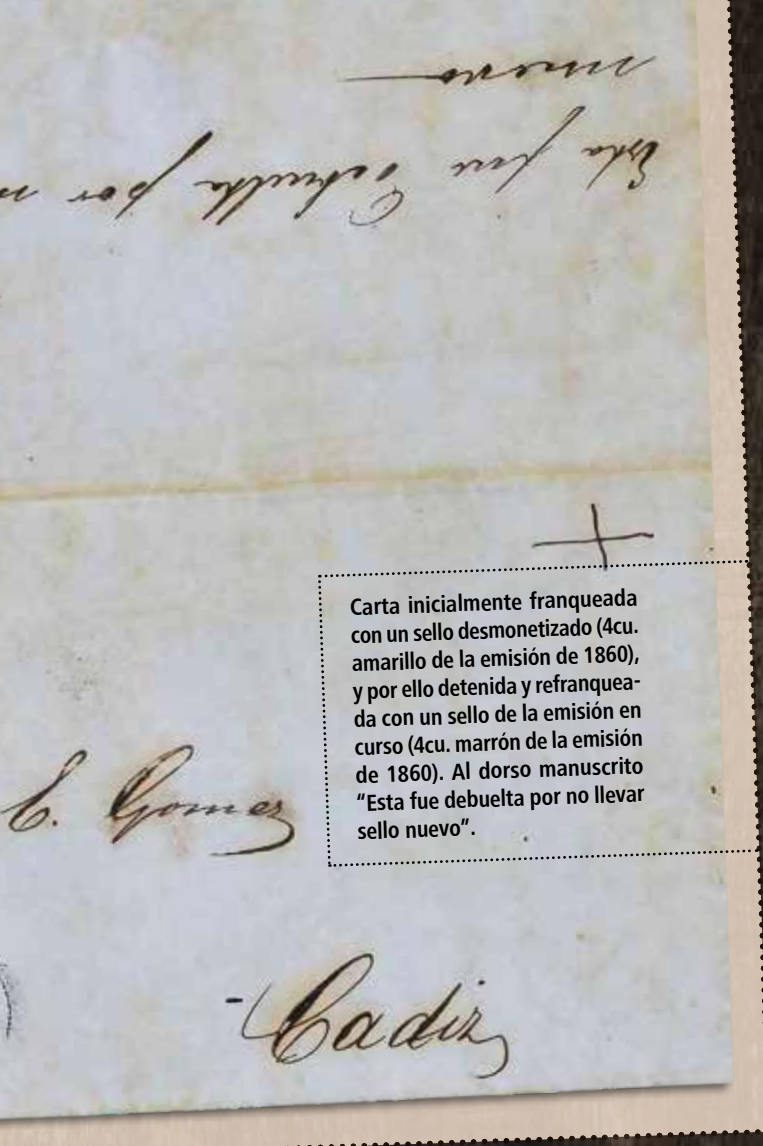 Esta fue Debuelta por
nuevo
Carta inicialmente franqueada
con un sello desmonetizado (4cu.
amarillo de la emisión de 1860),
y por ello detenida y refranquea-
da con un sello de la emisión en
curso (4cu. marrón de la emisión
de 1860). Al dorso manuscrito
“Esta fue debuelta por no llevar
sello nuevo”.
E. Gomez
Cadiz